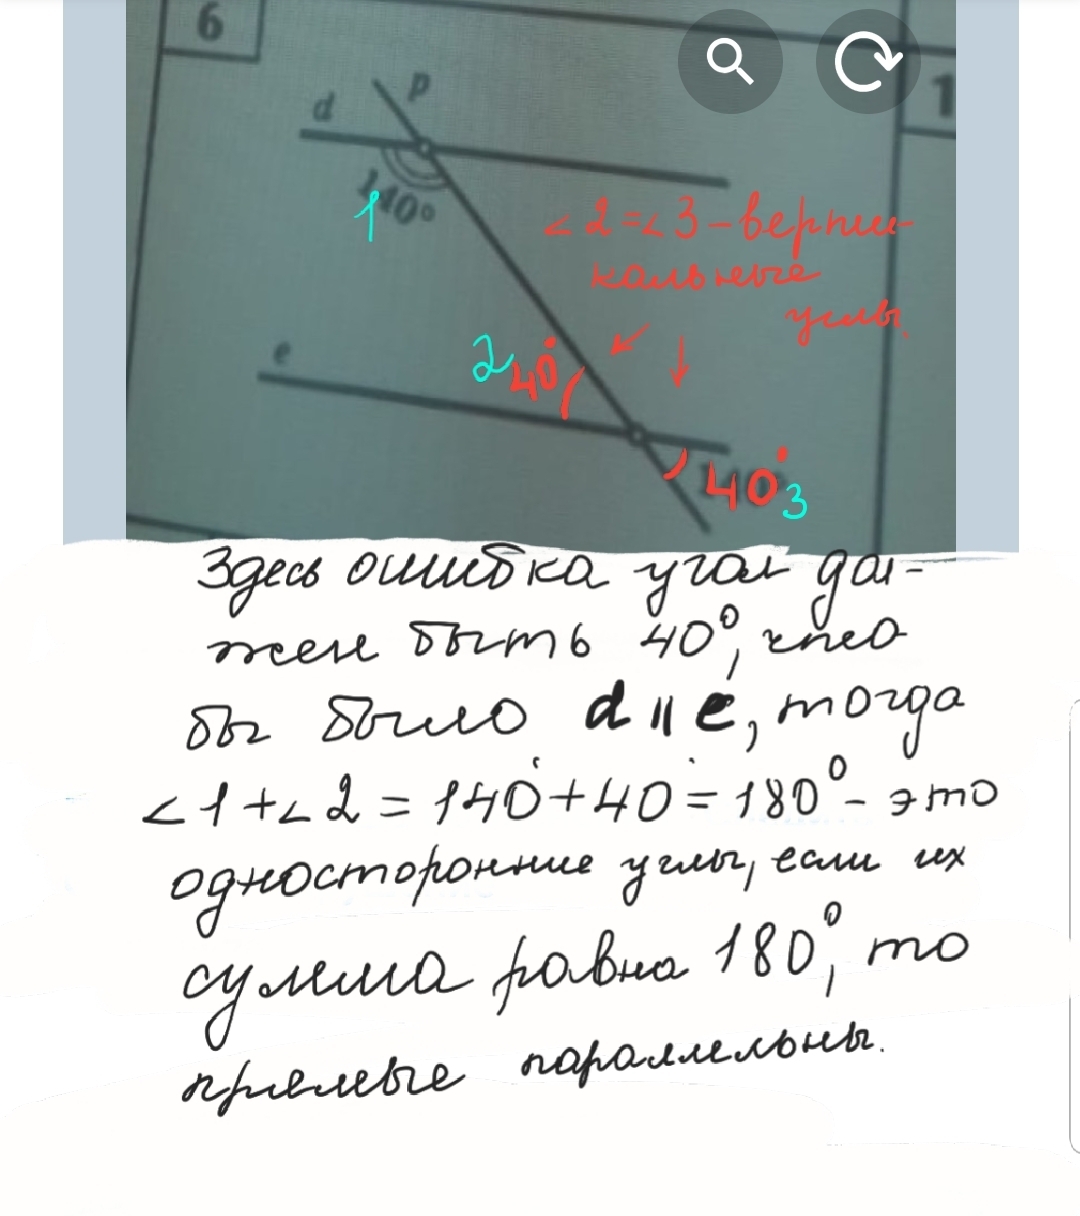 6
1
p
d
140°
1
∠2=∠3-верти-
кальные
углы.
e
2 40°
40° 3
Здесь ошибка угол дол-
жен быть 40°, что
бы было d || e, тогда
∠1+∠2=140°+40°=180°- это
односторонние углы, если их
сумма равна 180°, то
прямые параллельны.